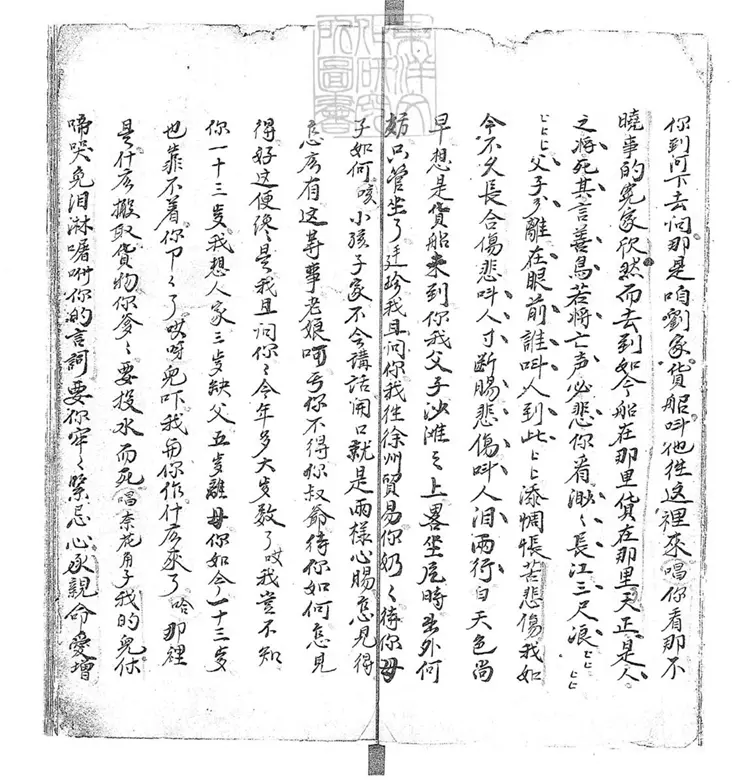 你到河下去问那是咱劉家貨船叫他往这裡來唱你看那不
曉事的冤家欣然而去到如今船在那里貨在那里天正是人
之将死其言善鳥若将亡声必悲你看渺〻長江三尺浪〻〻
〻〻〻父子分離在眼前誰叫人到此〻〻添惆悵苦悲傷我如
今不久長合傷悲叫人寸断腸悲傷叫人泪兩行白天色尚
早想是貨船未到你我父子沙滩〻上畧坐片時出外何
妨只管坐了廷珍我且问你我往徐州貿易你奶〻待你母
子如何咳小孩子家不会講話開口就是兩樣心腸怎見得
怎広有这等事老娘呵亏你不得你叔爺待你如何怎見
得好这便纔是我且问你〻今年多大岁数了哎我豈不知
你一十三岁我想人家三岁缺父五岁離母你如今一十三岁
也靠不着你卩〻了哎呀兒吓我与你作什広來了哈那裡
是什広搬取貨物你爹〻要投水而死唱柰花角子我的兒休
啼哭免泪淋嘱咐你的言詞要你牢〻緊忌心承親命愛增
東洋文化研究所圖書